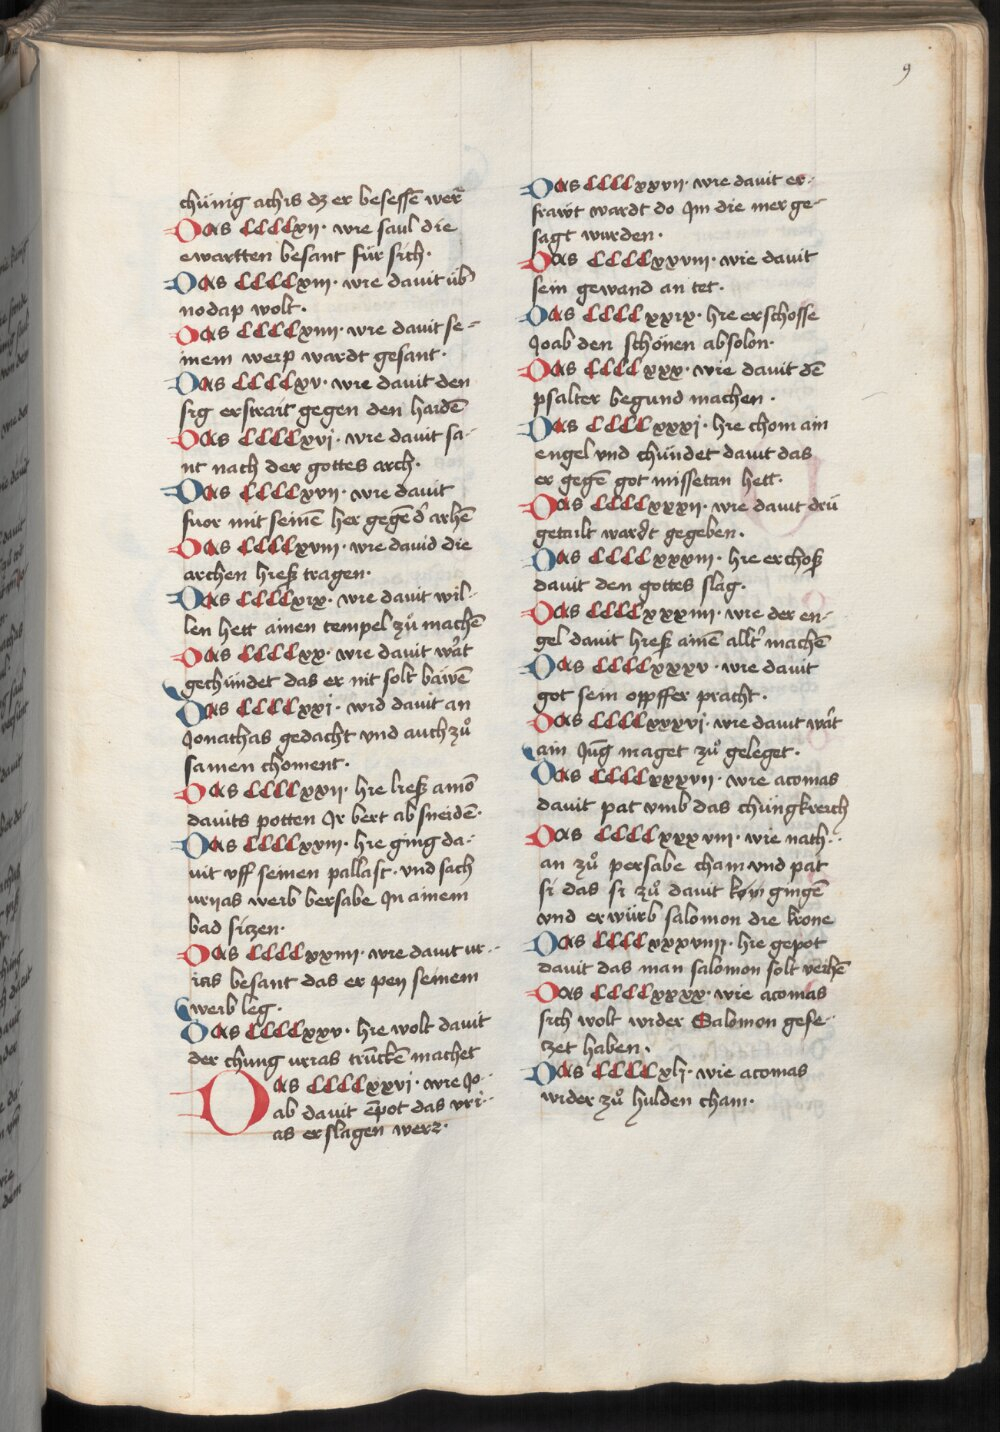 9
chünig achis dz er besessē wer̄
Das CCCCxij· wie saul die
ewartten besant für sich·
Das CCCCxiij· wie dauit üb̄
nodap wolt·
Das CCCCxiiij· wie dauit se-
inem weip wardt gesant·
Das CCCCxv· wie dauit den
sig erstrait gegen den haidē
Das CCCCxvj· wie dauit sa-
nt nach der gottes arch·
Das CCCCxvij· wie dauit
fuor mit seinē her gegē d̓ arhē
Das CCCCxviij· wie dauid die
archen hieß tragen·
Das CCCCxix· wie dauit wil-
len hett ainen tempel zů machē
Das CCCCxx· wie dauit wa̓t
gechündet das er nit solt bawē
Das CCCCxxj· wid dauit an
Jonathas gedacht vnd auch zů
samen choment·
Das CCCCxxij· hie ließ amō
dauits potten Jr bert ab sneidē·
Das CCCCxxiij· hie ging da-
uit vff seinen pallast· vnd sach
vrijas weib bersabe Jn ainem
bad siczen·
Das CCCCxxiiij· wie dauit ur-
ias besant das er pey seinem
weib leg·
Das CCCCxxv· hie wolt dauit
der chunig urias trūckē machet
Das CCCCxxvj· wie Jo-
ab dauit ēpot das vri-
as erslagen werr·
Das CCCCxxvij· wie dauit er-
frawt wardt do Jm die mer ge-
sagt wurden·
Das CCCCxxviij· wie dauit
sein gewand an tet·
Das CCCCxxix· hie erschosse
Joab den schönen absolon·
Das CCCCxxx· wie dauit dē
psalter begund machen·
Das CCCCxxxj· hie chom ain
engel vnd chündet dauit das
er gegē got missetan hett·
Das CCCCxxxij· wie dauit drü
getailt wardt gegeben·
Das CCCCxxxiij· hie erchoß
dauit den gottes slag·
Das CCCCxxxiiij· wie der en-
gel dauit hieß ainē allt̓ machē
Das CCCCxxxv· wie dauit
got sein opffer pracht·
Das CCCCxxxvj· wie dauit wa̓t
ain Jūg maget zů geleget·
Das CCCCxxxvij· wie aconias
dauit pat vmb das chüngkreich
Das CCCCxxxviij· wie nath-
an zů persabe cham vnd pat
si das si zů dauit kön gingē
vnd erwürb salomon die krone
Das CCCCxxxviiij· hie gepot
dauit das man salomon solt weihē
Das CCCCxxxx· wie aconias
sich wolt wider Salomon gese-
czet haben·
Das CCCCxlj· wie aconias
wider zů hulden cham·